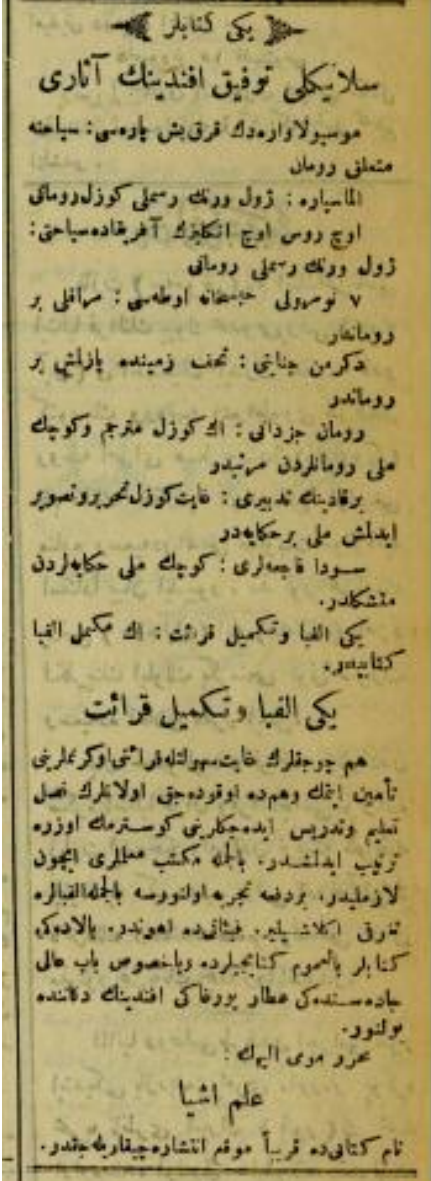 یكی كتابلر
سلانیكلی توفیق افندینك آثاری
موسیو لاواره‌دك قرق بش پاره‌سی : سیاحته
متعلق رومان
الماسپاره : ژول ورنك رسملی كوزل رومانی
اوچ روس اوچ انكلیزك آفریقاده سیاحتی :
ژول ورنك رسملی رومانی
۷ نومرولی اوطه‌سی : مراقلی بر
روماندر
دكرمن جنایتی : تحف زمینده یازلمش بر
روماندر
رومان جزدانی : اك كوزل مترجم وكوچك
ملی رومانلردن مرتبدر
برقادینك تدبیری : غایت كوزل تحریر وتصویر
ایدلمش ملی بر حكایه‌در
سودا فاجعه‌لری : كوچك ملی حكایه‌لردن
متشكلدر.
یكی الفبا وتكمیل قرائت : اك مكمل الفبا
كتابیدر.
یكی الفبا وتكمیل قرائت
هم چوجقلرك غایت سهولتله قرائتی اوكرنملرینی
تأمین ایتمك وهم‌ده اوقوده‌جق اولانلرك نصل
تعلیم وتدریس ایده‌جكلرینی كوسترمك اوزره
ترتیب ایدلمشدر. بالجمله مكتب معلملری ایچون
لازملیدر. بردفعه تجربه اولنورسه بالجمله الفبالره
تفوقی اكلاشیلیر. فیئاتی‌ده اهوندر. بالاده‌كی
كتابلر بالعموم كتابجیلرده وباخصوص باب عالی
جاده‌سنده‌كی عطار یورغاكی افندینك دكاننده
بولنور.
محرر مومی الیهك :
علم اشیا
نام كتابی‌ده قریباً موقع انتشاره چیقاریله‌جقدر.